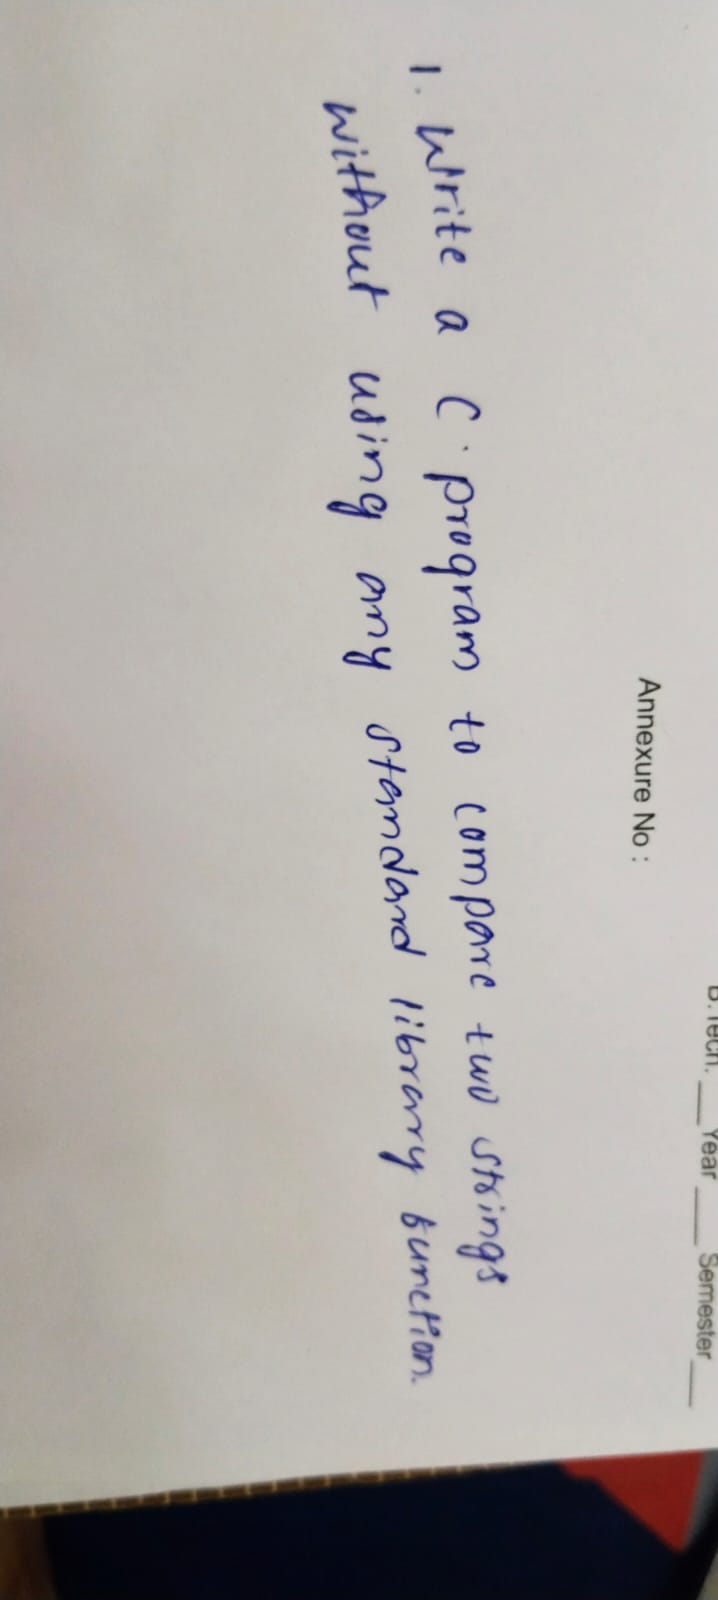 B.Tech. ___ Year ____ Semester ___
Annexure No :
1. Write a C program to compare two strings
without using any standard library function.